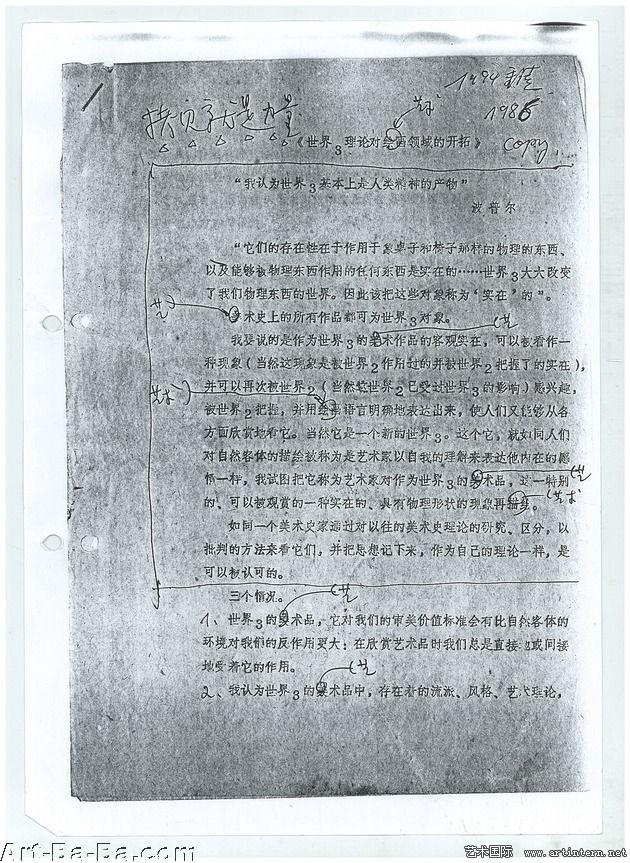 艺术
1986
copy
《世界3理论对绘画领域的开拓》
“我认为世界3基本上是人类精神的产物”
波普尔
“它们的存在性在于作用于象桌子和椅子那样的物理的东西、
以及能够被物理东西作用的任何东西是实在的……世界3大大改变
了我们物理东西的世界。因此该把这些对象称为‘实在’的”。
艺
美术史上的所有作品都可为世界3对象。
艺
我要说的是作为世界3的美术作品的客观实在，可以被看作一
种现象（当然这现象是被世界2作用过的并被世界2把握了的实在），
艺术
并可以再次被世界2（当然这世界2已受过世界3的影响）感兴趣，
被世界2把握，并用绘画语言明确地表达出来，使人们又能够从各
方面欣赏地看它。当然它是一个新的世界3。这个它，就如同人们
对自然客体的描绘被称为是艺术家以自我的理解来表达他内在的感
艺
悟一样，我试图把它称为艺术家对作为世界3的美术品，这一特别
艺术
的、可以被观赏的一种实在的、具有物理形状的现象再描绘。
如同一个美术史家通过对以往的美术史理论的研究、区分，以
批判的方法来看它们，并把思想记下来，作为自己的理论一样，是
可以被认可的。
三个情况。
艺
1、世界3的美术品，它对我们的审美价值标准会有比自然客体的
环境对我们的反作用更大；在欣赏艺术品时我们总是直接地或间接
地受着它的作用。
艺
2、我认为世界3的美术品中，存在着的流派、风格、艺术理论，
Art-Ba-Ba.com
艺术国际 www.artintern.net